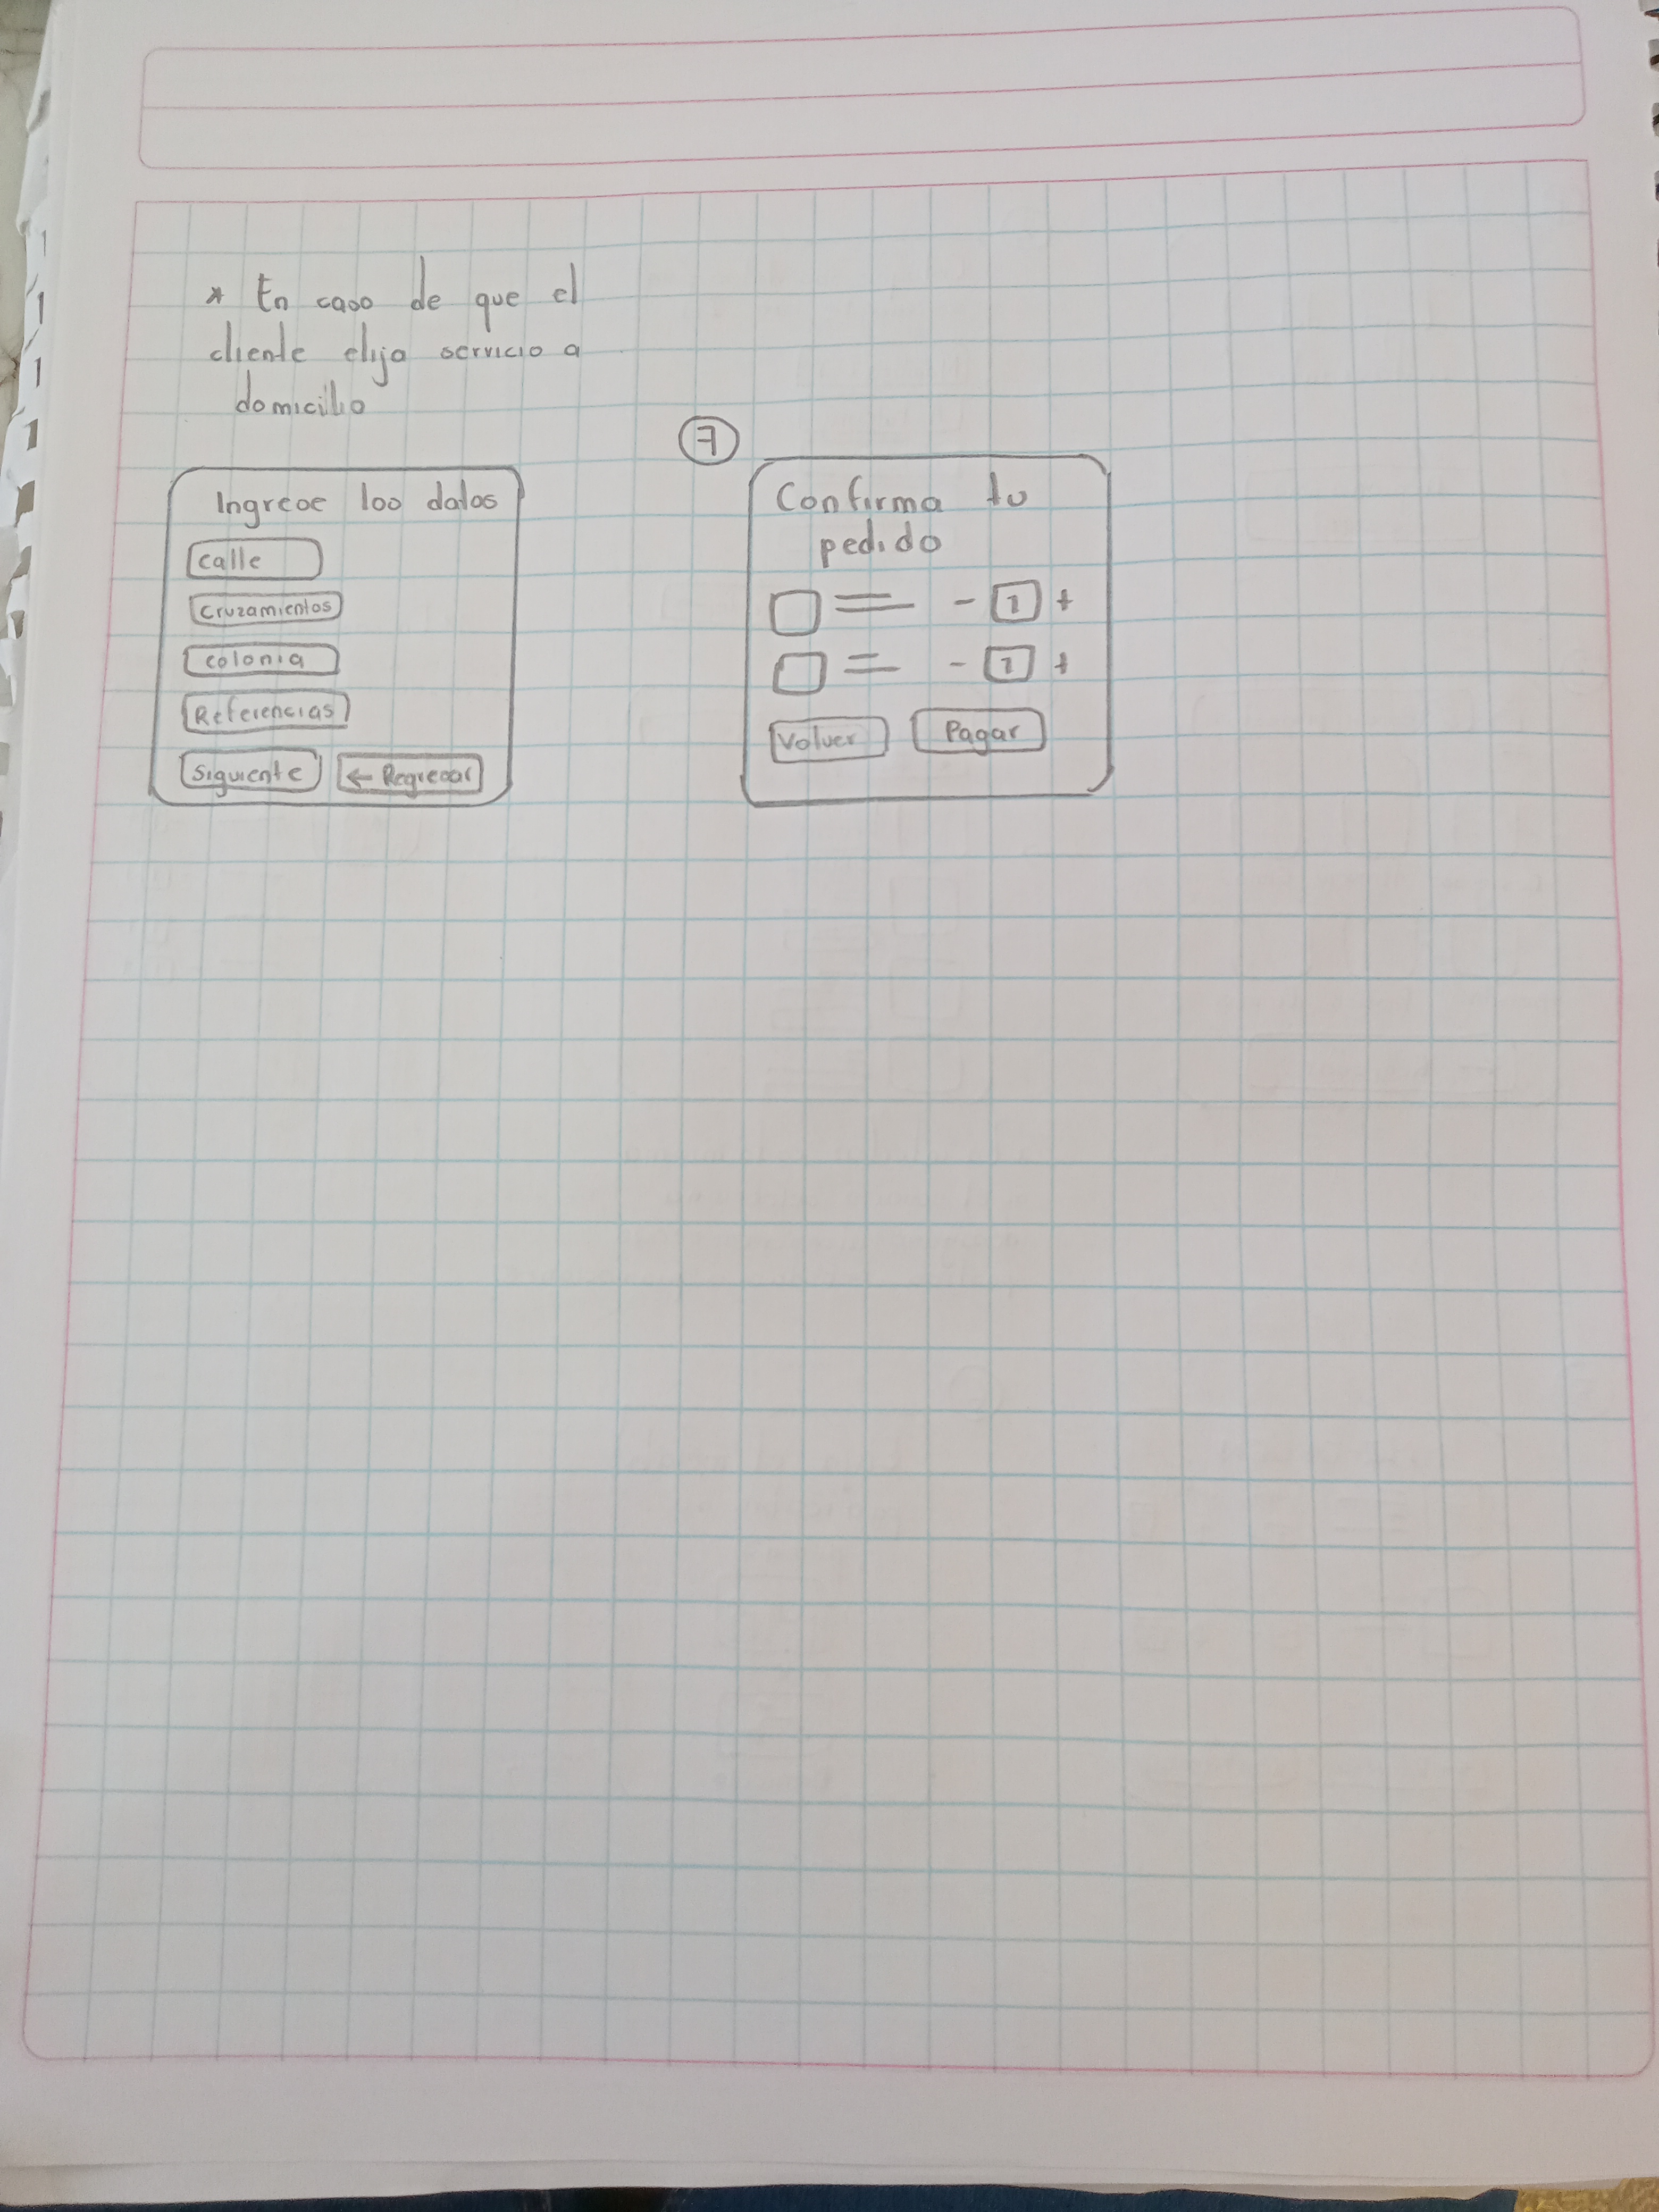 * En caso de que el
cliente elija servicio a
domicilio
Ingrese los datos
calle
Cruzamientos
colonia
Referencias
Siguiente ← Regresar
7
Confirma tu
pedido
- 1 +
- 1 +
Volver Pagar